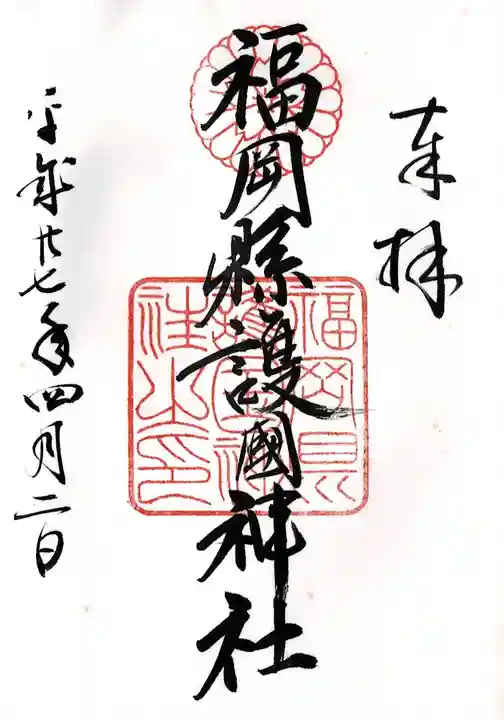 奉拝
福岡縣護國神社
福岡県
護国神
社之印
平成廿七年四月二日